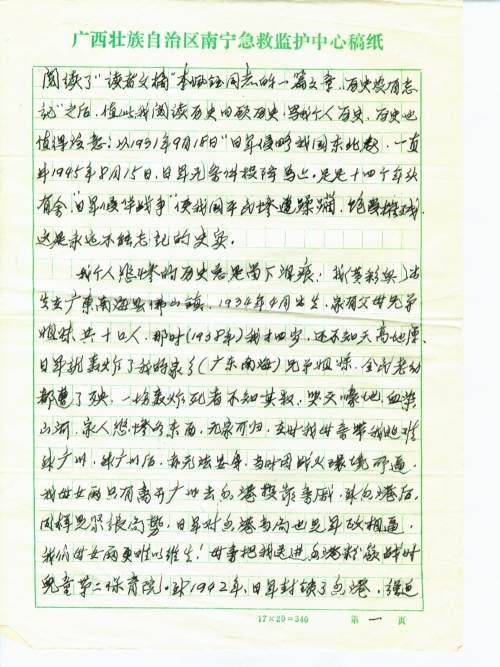 广西壮族自治区南宁急救监护中心稿纸
阅读了"读者文摘"李同志的一篇文章,历史没有忘
记"之后,值此我阅读历史回顾历史,写我个人历史,历史也
值得注意:从1931年9月18日"日军侵略我国东北起,一直
到1945年8月15日,日军无条件投降为止,足足十四个年头
有余"日军侵华战争"使我国平民惨遭蹂躏,饱受摧残.
这是永远不能忘记的史实.
我个人悲惨的历史更是留下泪痕:我(黄彩)出
生在广东南海县佛山镇,1934年4月出生,家有父母兄弟
姐妹共十口人,那时(1938年)我才四岁,还不知天高地厚.
日军就轰炸了我的家乡(广东南海)兄弟姐妹,全家老幼
都遭了殃,一场轰炸死者不知其数,哭天嚎地,血染
山河,家人悲惨各东西,无家可归,时我母亲带我逃难
到广州,到广州后,亦无法安身,当时因战火环境所逼,
我母女两只有离开广州去香港投靠亲戚,到香港后,
同样是紧张局势,日军对香港当局也是军政相逼,
我们母女两更难以维生!母亲把我送进香港粉岭战时
儿童第二保育院.到1942年,日军封锁了香港,强迫
17×20=340 第 一 页